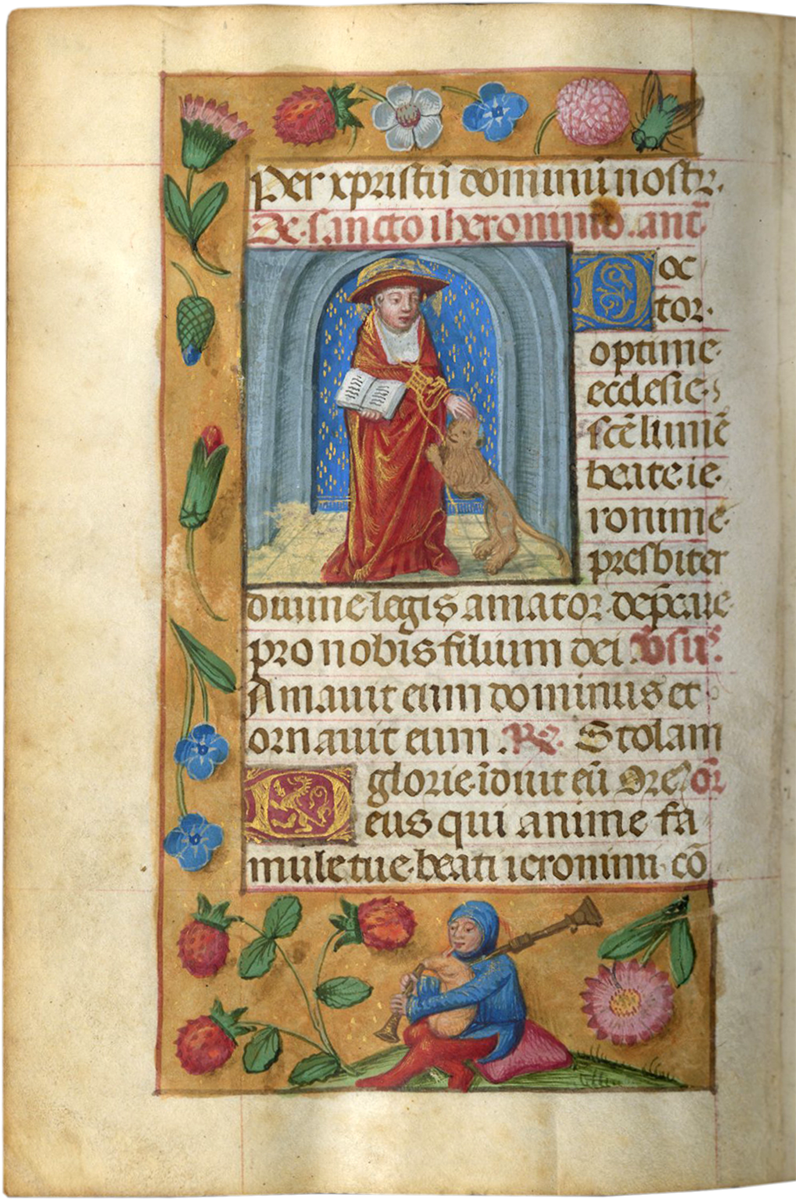 Per xpristū dominū nostr.
De sancto iheronimo. ant
Doc
tor
optime
ecclesie
scē lumē
beate ie
ronime
presbiter
diuine legis amator dep̄care
pro nobis filium dei. v̄sus.
Amauit eum dominus et
ornauit eum. R̄. Stolam
glorie īduit eū Ore. or̄
Deus qui anime fa
mule tue beati ieronimi cō